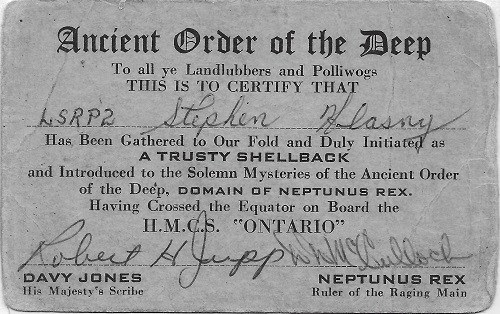 Ancient Order of the Deep
To all ye Landlubbers and Polliwogs
THIS IS TO CERTIFY THAT
LSRP2 Stephen Klasny
Has Been Gathered to Our Fold and Duly Initiated as
A TRUSTY SHELLBACK
and Introduced to the Solemn Mysteries of the Ancient Order
of the Deep, DOMAIN OF NEPTUNUS REX.
Having Crossed the Equator on Board the
H.M.C.S. "ONTARIO"
Robert H Jupp McCulloch
DAVY JONES NEPTUNUS REX
His Majesty's Scribe Ruler of the Raging Main